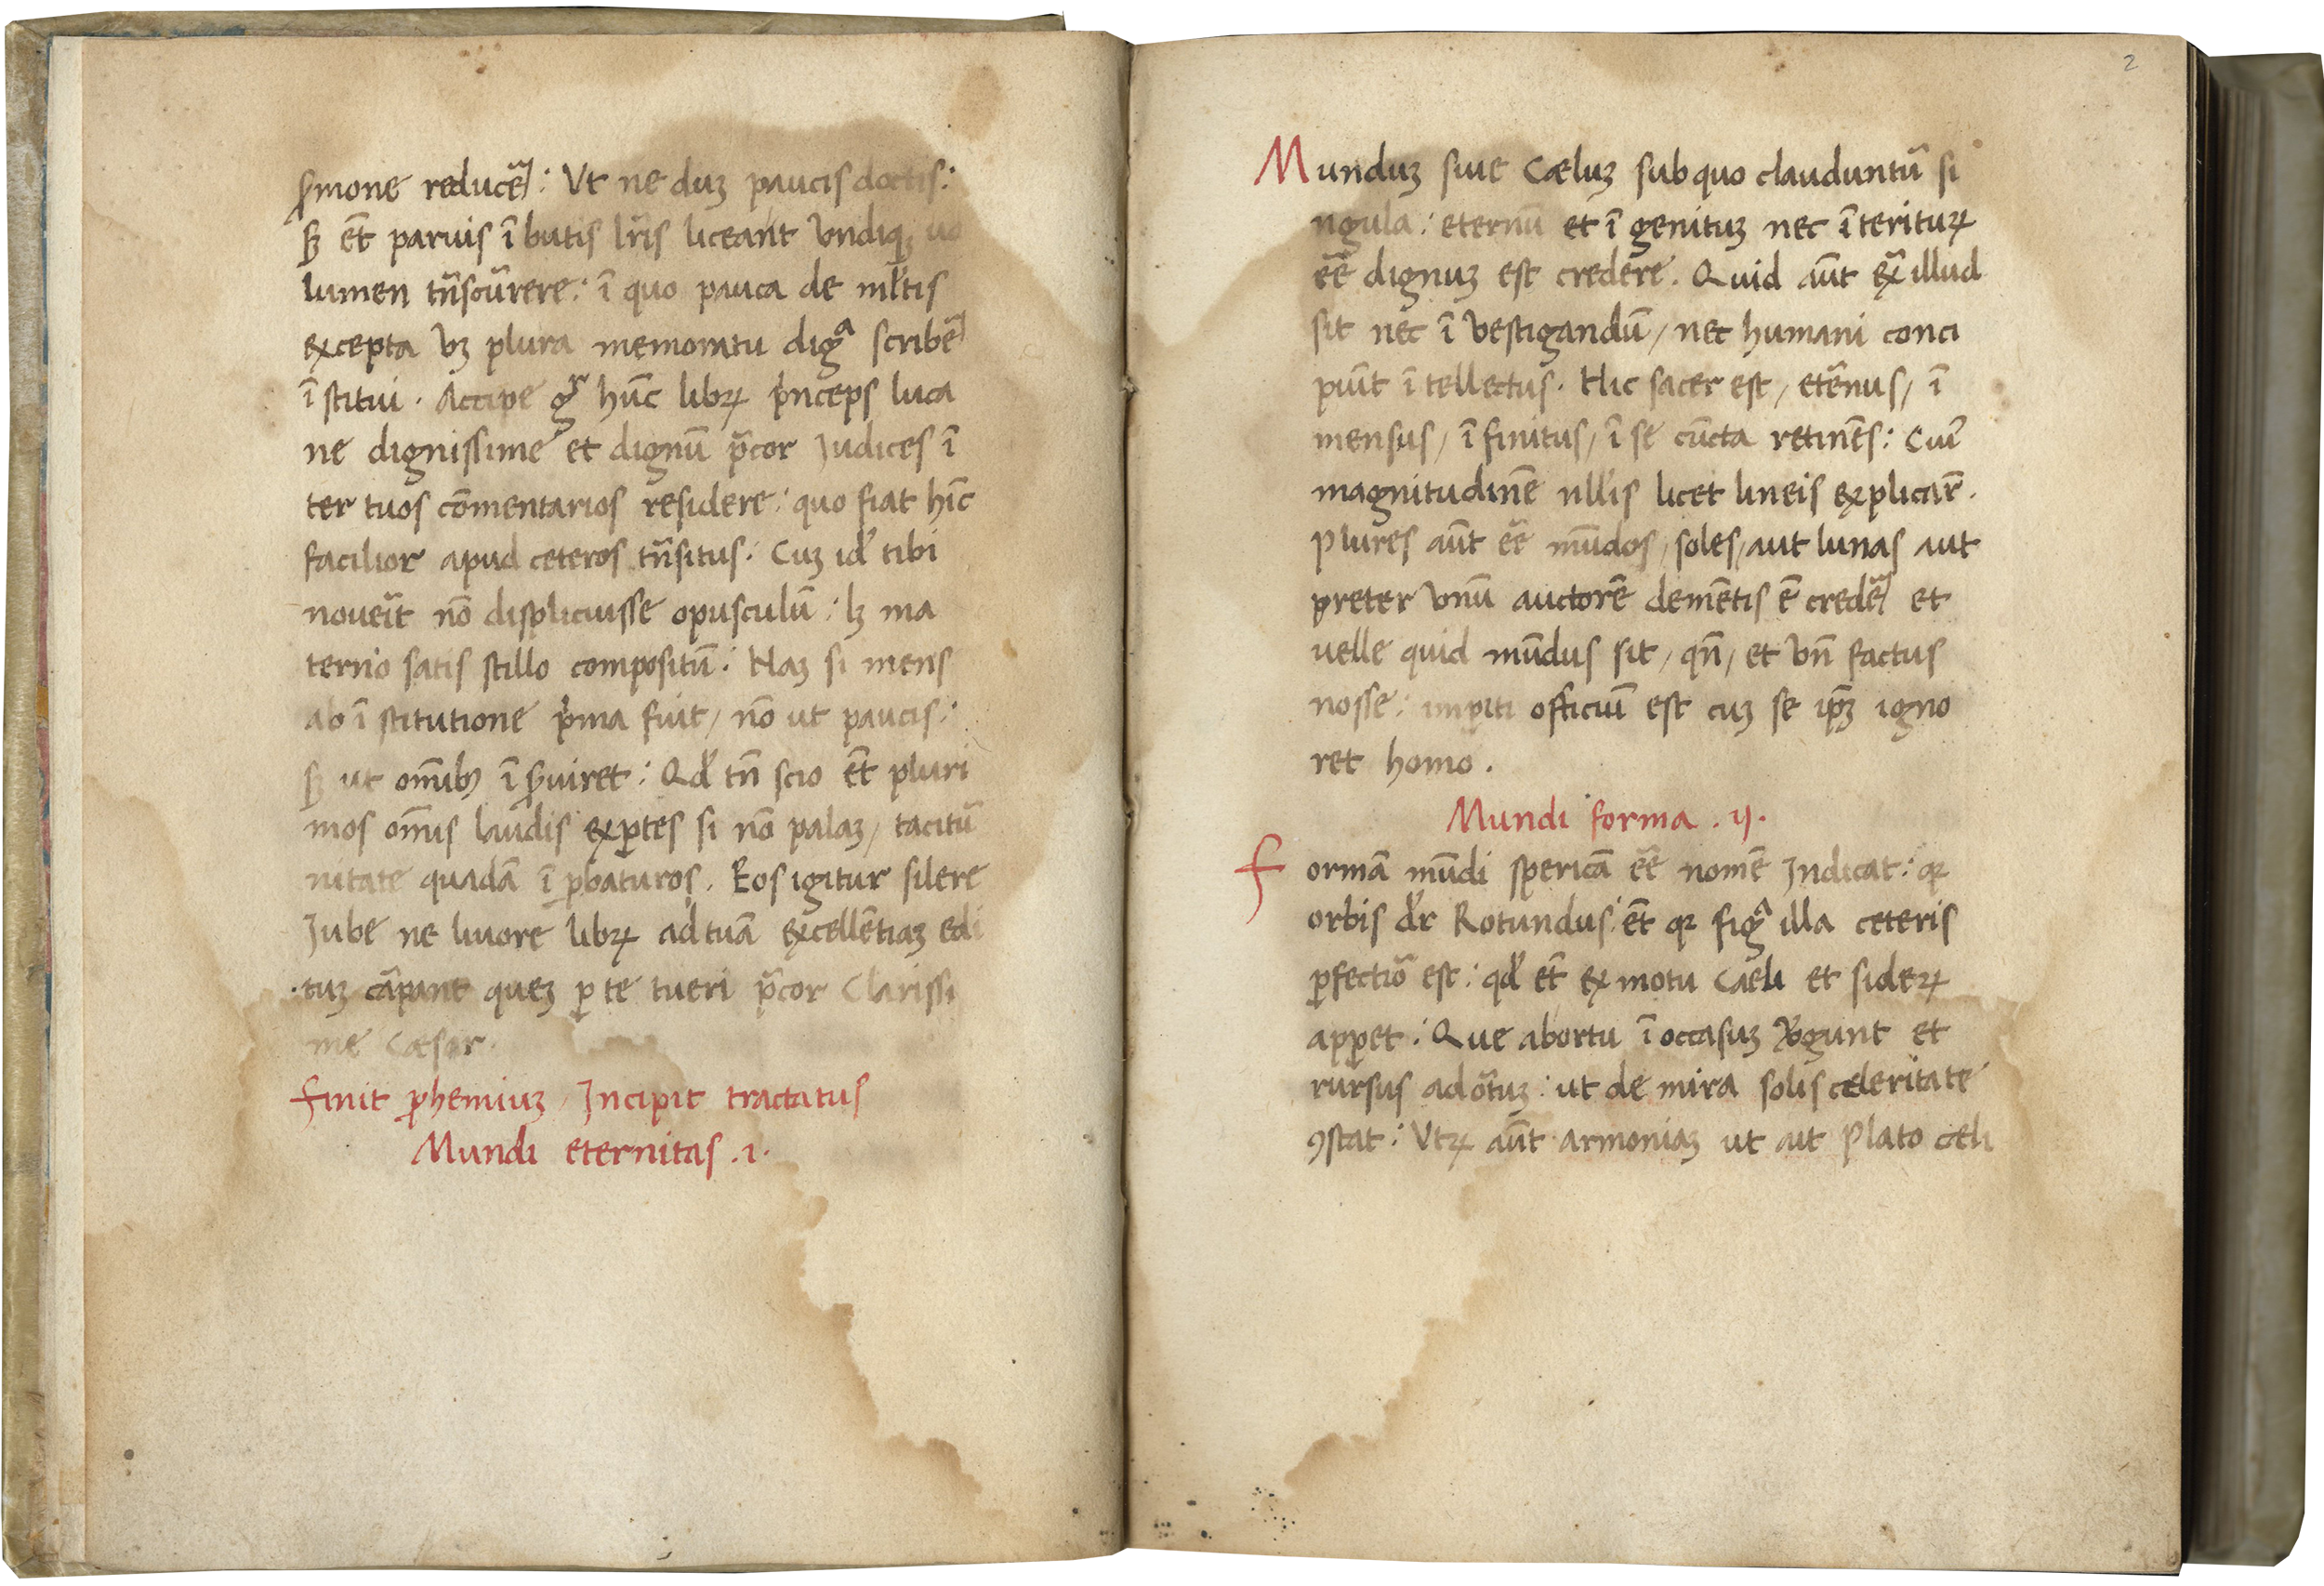 ꝑmone reducẽ: Ut ne duꝫ paucis doctis:
sꝫ et̃ paruis ĩbutis lr̃is liceant vndiqꝫ uo
lumen trñscũrere: ĩ quo pauca de ml̃tis
excepta vꝫ plura memoratu digᵃ scribẽ
ĩstitui. Accipe gͬ hũc librꝝ pͥnceps luca
ne dignissime et dignũ p̃cor Judices ĩ
ter tuos cõmentarios residere: quo fiat hĩc
facilior apud ceteros trñsitus: Cuꝫ id̛ tibi
noueĩt nõ displicuisse opusculũ: lꝫ ma
terno satis stillo compositũ: Naꝫ si mens
ab ĩstitutione pͥma fuit, nõ ut paucis:
sꝫ ut om̃ibꝫ ĩẜuiret: Qd̛ tñ scio et̃ pluri
mos om̃is laudis exꝑtes si nõ palaꝫ, tacitũ
nitate quadã ĩꝓbaturos. Eos igitur silere
Jube ne liuore librꝝ ad tuã excellẽtiaꝫ edi
tuꝫ cãrpant queꝫ ꝑ te tueri p̃cor Clarissi
me Cæsar.
finit ꝓhemiuꝫ, Incipit tractatus
Mundi eternitas .1.
2
Munduꝫ siue Cæluꝫ sub quo clauduntũ si
ngula: eternũ et ĩgenituꝫ nec ĩterituꝝ
eẽ dignuꝫ est credere. Quid aũt ex̃ illud
sit nec ĩvestigandũ, nec humani conci
piũt ĩtellectus. Hic sacer est, etẽnus, ĩ
mensus, ĩfinitus, ĩ se cũcta retinẽs: Cui᷒
magnitudinẽ nll̃is licet lineis explicar̃.
Plures aũt eẽ mũdos, soles, aut lunas aut
preter vnũ auctorẽ demẽtis ẽ credẽ et
uelle quid mũdus sit, qñ, et vñ factus
nosse: impiti officiũ est cuꝫ se ip̃ꝫ igno
ret homo.
Mundi forma .ij.
formã mũdi spericã eẽ nomẽ Indicat: qꝛ
orbis dr̃ Rotundus: et̃ qꝛ figᵃ illa ceteris
ꝑfectiõ est: qd̛ et̃ ex motu Cæli et siderꝝ
apꝑet: Que abortu ĩ occasuꝫ v̛gunt et
rursus ad õtuꝫ: ut de mira solis celeritate
ꝯstat: Utrꝝ aũt armoniaꝫ ut ait Plato cæli